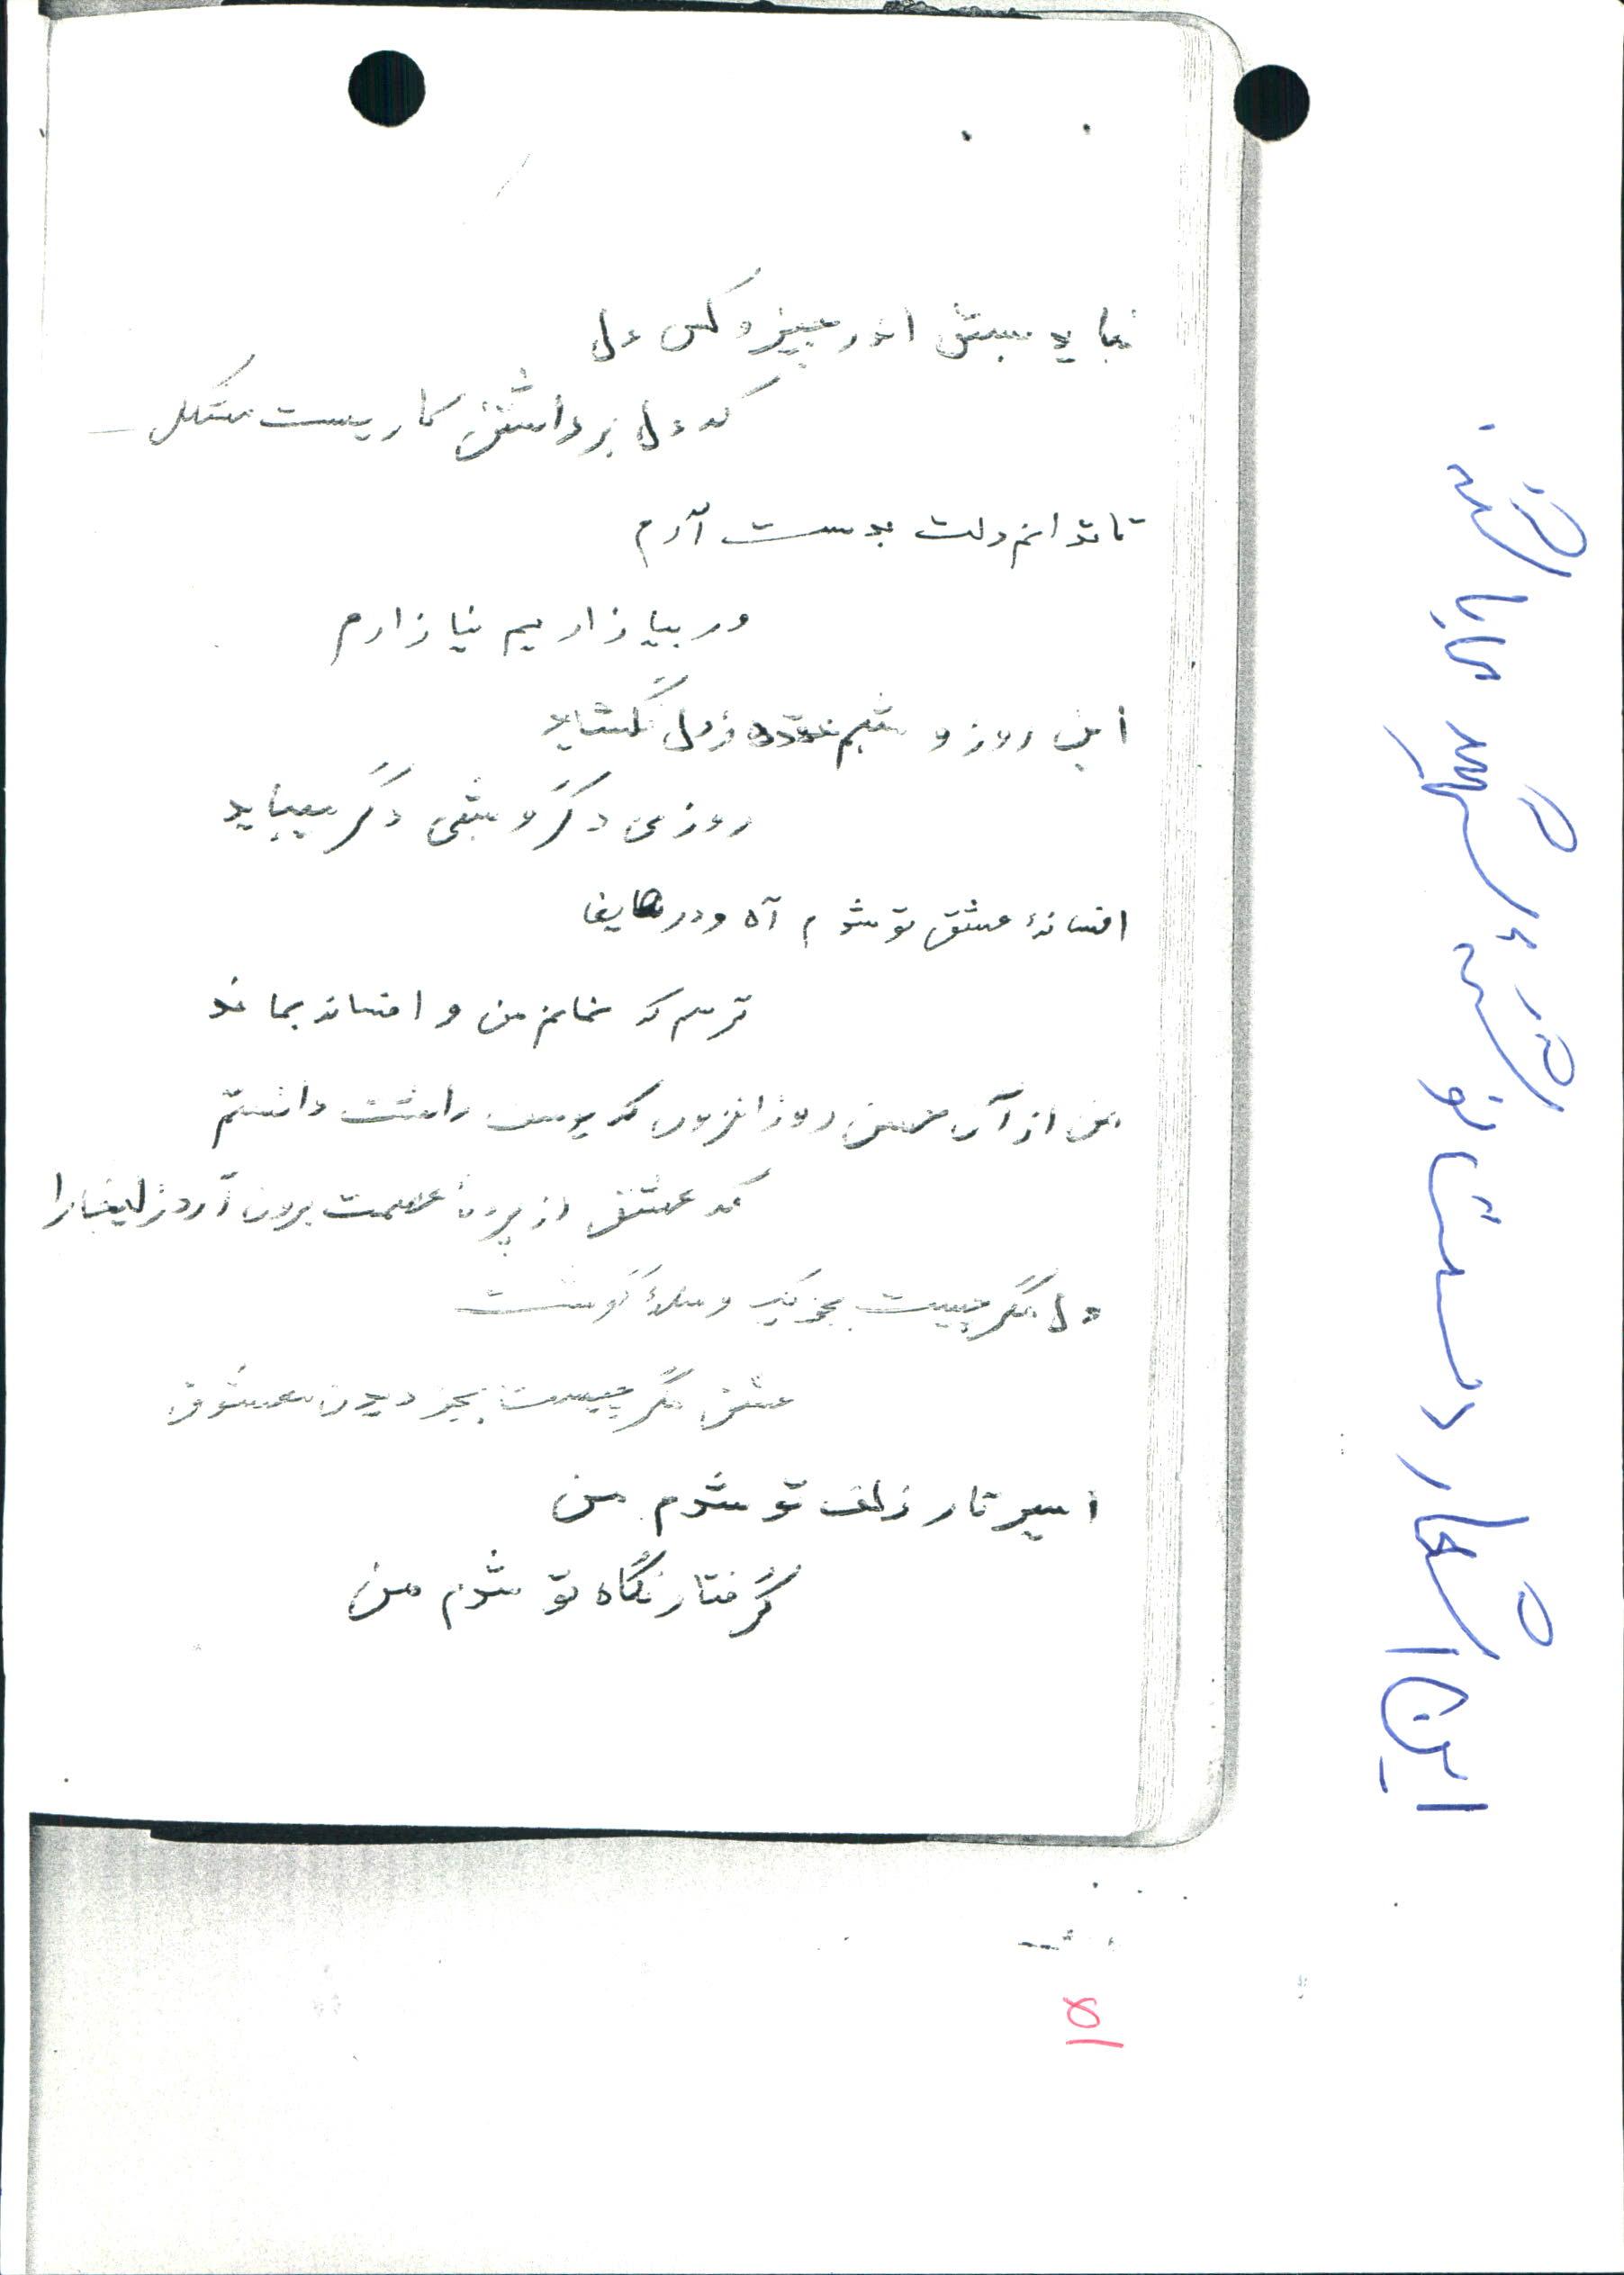 نباید بستن اندر چیز و کس دل
که دل برداشتن کاریست مشکل
تا توانم دلت بدست آرم
ور بیازاریم نیازارم
این روز و شبم عقده ز دل نگشاید
روزی دگر و شبی دگر میباید
افسانهٔ عشق تو شدم آه و دریغا
ترسم که نمانم من و افسانه بماند
من از آن حسن روزافزون که یوسف داشت دانستم
که عشق از پردهٔ عصمت برون آرد زلیخا را
دل مگر چیست بجز یک وصلهٔ گوشت
عشق مگر چیست بجز دیدن معشوق
اسیر تار زلف تو شدم من
گرفتار نگاه تو شدم من
این اشعار دستنو شهید میباشد.
۵۱